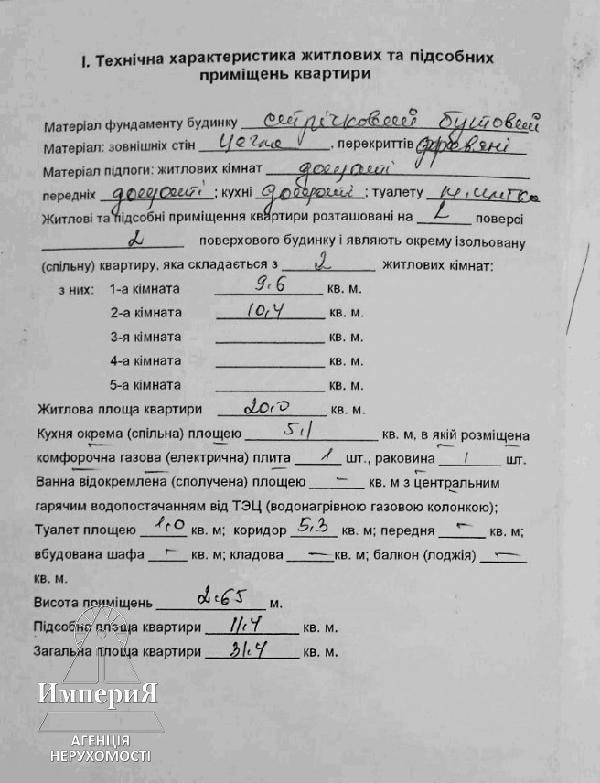 І. Технічна характеристика житлових та підсобних
приміщень квартири
Матеріал фундаменту будинку стрічковий бутовий
Матеріал: зовнішніх стін цегла, перекриттів дерев'яні
Матеріал підлоги: житлових кімнат дощаті
передніх дощаті; кухні дощаті; туалету м. плитка
Житлові та підсобні приміщення квартири розташовані на 2 поверсі
2 поверхового будинку і являють окрему ізольовану
(спільну) квартиру, яка складається з 2 житлових кімнат:
з них: 1-а кімната 9.6 кв. м.
2-а кімната 10,4 кв. м.
3-я кімната кв. м.
4-а кімната кв. м.
5-а кімната кв. м.
Житлова площа квартири 20.0 кв. м.
Кухня окрема (спільна) площею 5,1 кв. м, в якій розміщена
комфорочна газова (електрична) плита 1 шт., раковина 1 шт.
Ванна відокремлена (сполучена) площею – кв. м з центральним
гарячим водопостачанням від ТЭЦ (водонагрівною газовою колонкою);
Туалет площею 1.0 кв. м; коридор 5,3 кв. м; передня – кв. м;
вбудована шафа – кв. м; кладова – кв. м; балкон (лоджія) –
кв. м.
Висота приміщень 2.65 м.
Підсобна площа квартири 11.4 кв. м.
Загальна площа квартири 31.4 кв. м.
ИмпериЯ
АГЕНЦІЯ
НЕРУХОМОСТІ